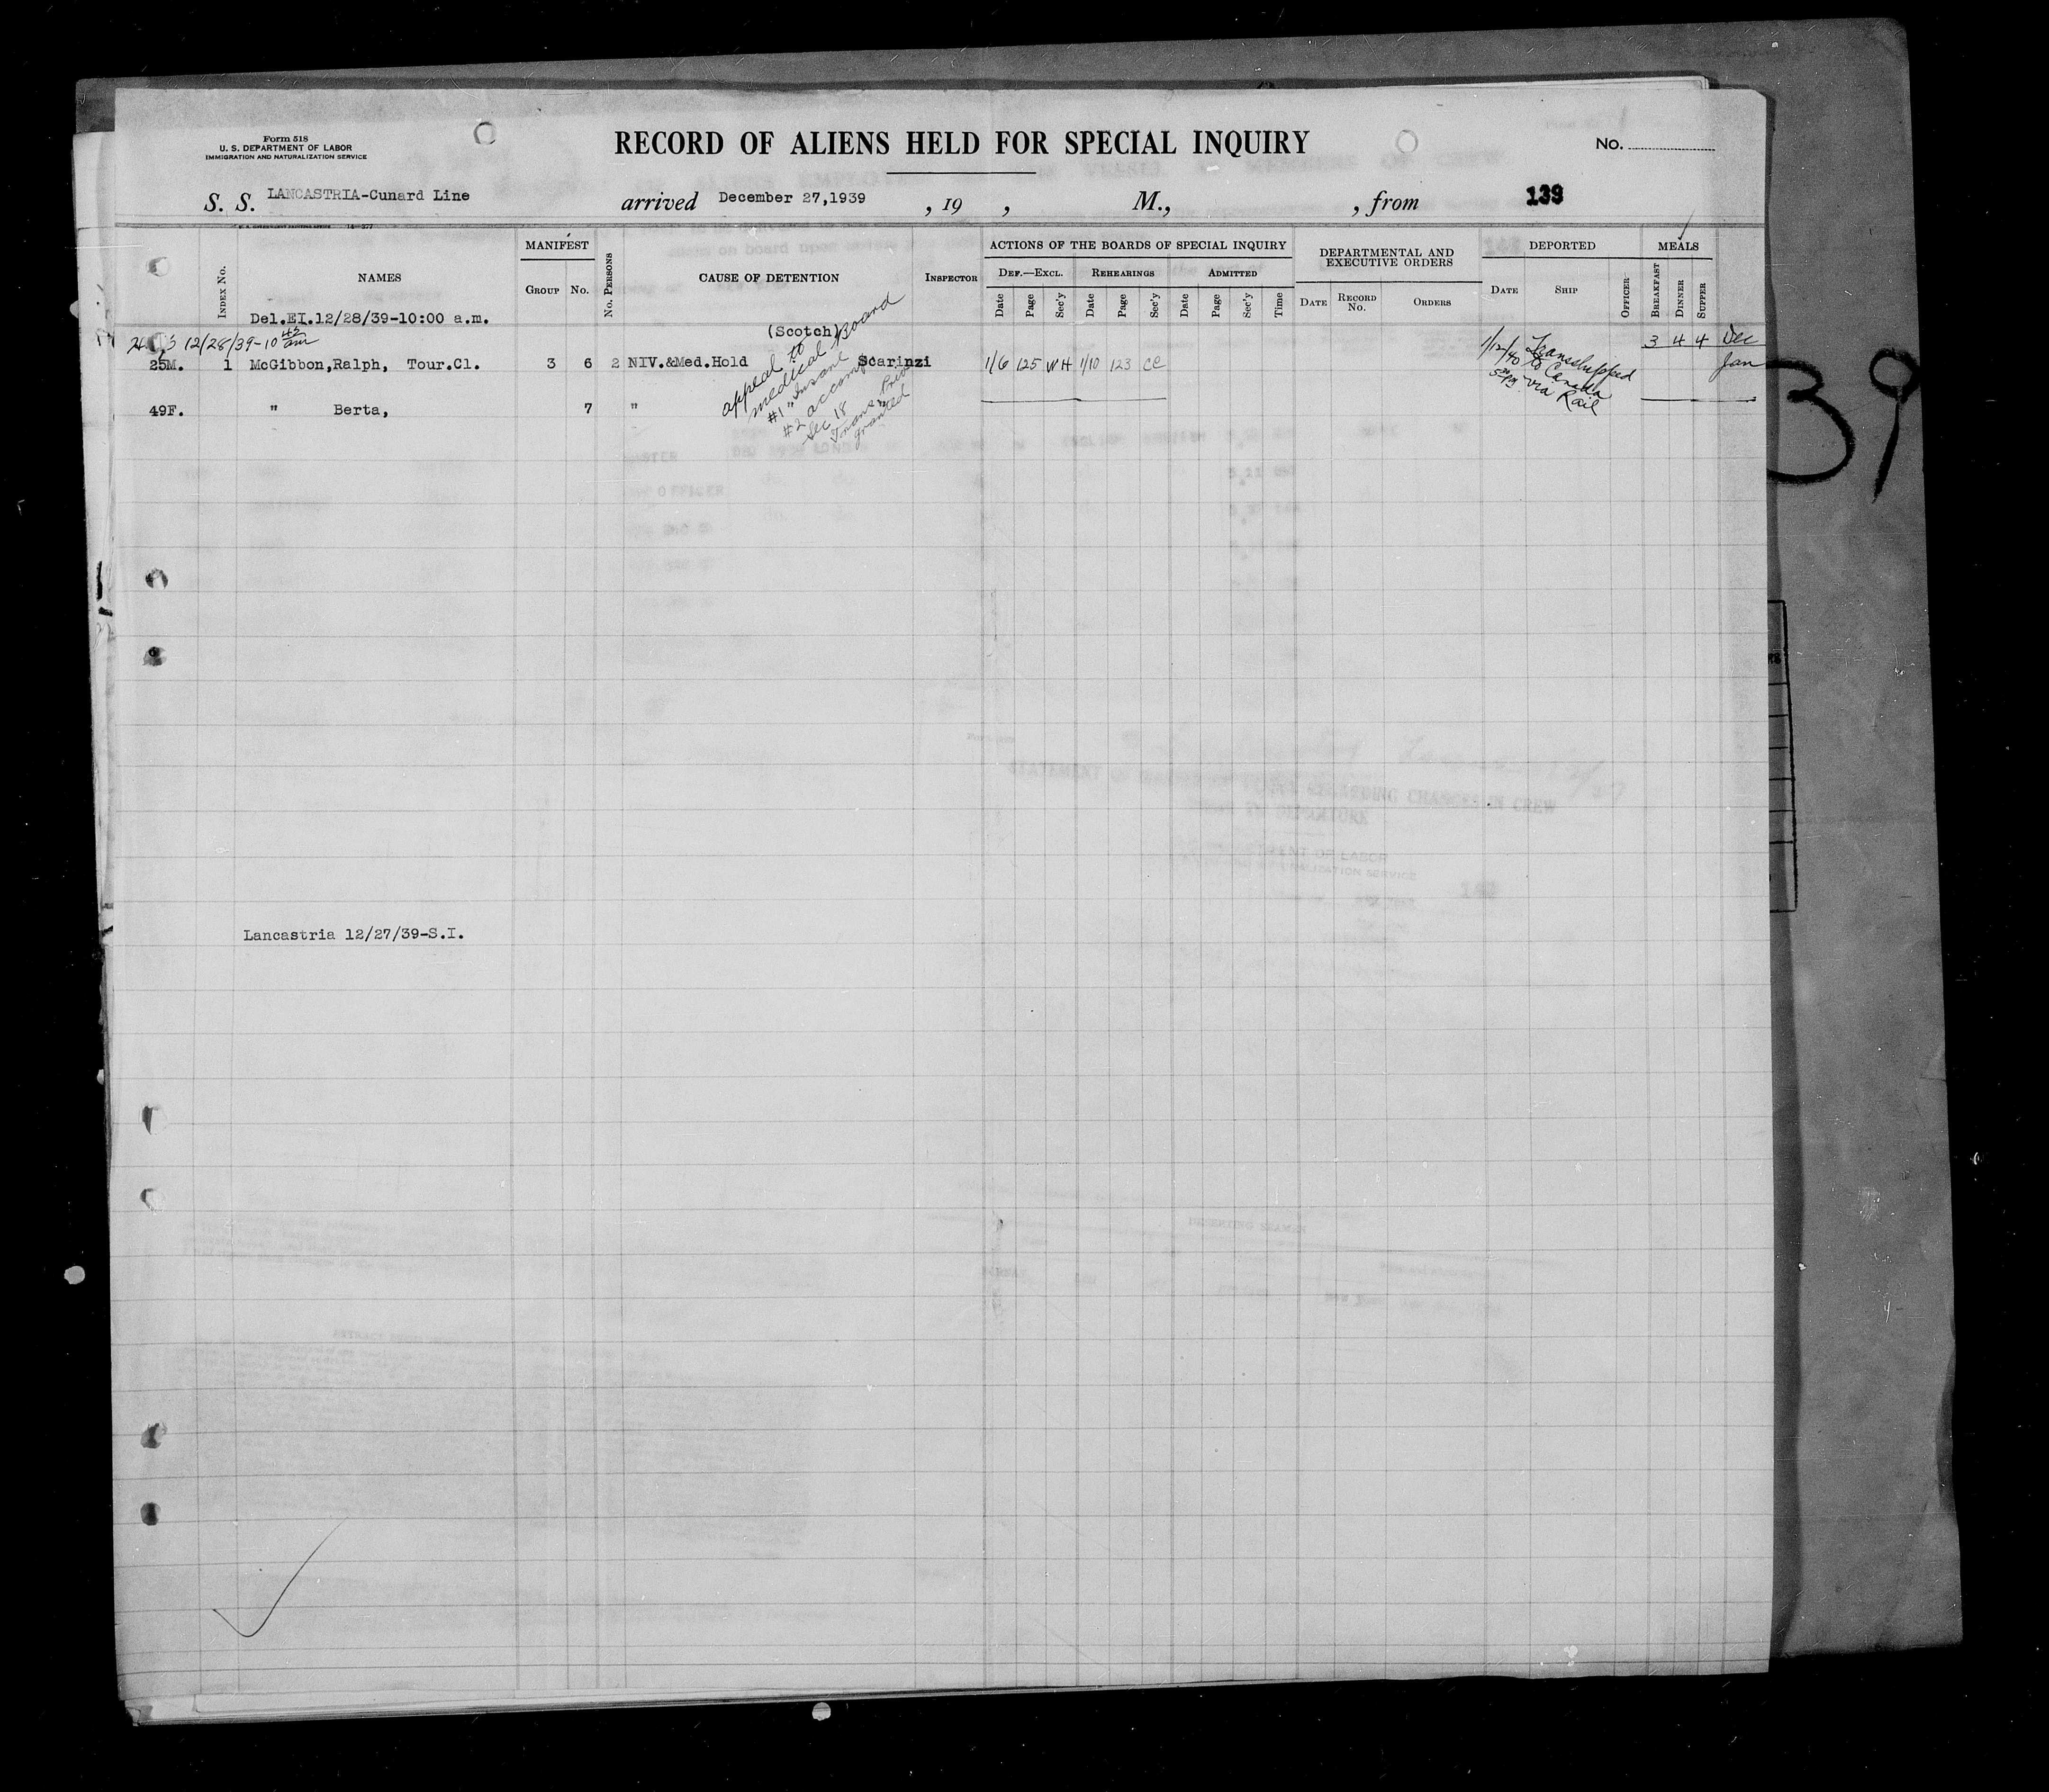 Form 518
U. S. DEPARTMENT OF LABOR
IMMIGRATION AND NATURALIZATION SERVICE
RECORD OF ALIENS HELD FOR SPECIAL INQUIRY
No.
S. S. LANCASTRIA-Cunard Line arrived December 27,1939 , 19 , M., , from 139
INDEX No. NAMES MANIFEST GROUP No. No. PERSONS CAUSE OF DETENTION INSPECTOR
ACTIONS OF THE BOARDS OF SPECIAL INQUIRY
DEF.—EXCL. REHEARINGS ADMITTED
Date Page Sec'y Date Page Sec'y Date Page Sec'y Time
DEPARTMENTAL AND EXECUTIVE ORDERS
DATE RECORD No. ORDERS
DEPORTED
DATE SHIP OFFICER
MEALS
BREAKFAST DINNER SUPPER
Del.EI.12/28/39-10:00 a.m.
12/28/39-10 45 am
(Scotch)
3 4 4 Dec
25M. 1 McGibbon,Ralph, Tour.Cl. 3 6 2 NIV.&Med.Hold Scarinzi 1/6 125 WH 1/10 123 CC
Jan
49F. " Berta, 7 "
appeal to
medical Board
#1 "Insane"
#2 accomp
Sec 18
Trans. Priv
granted
1/12/40 Transhipped
to Canada
via Rail
Lancastria 12/27/39-S.I.
39